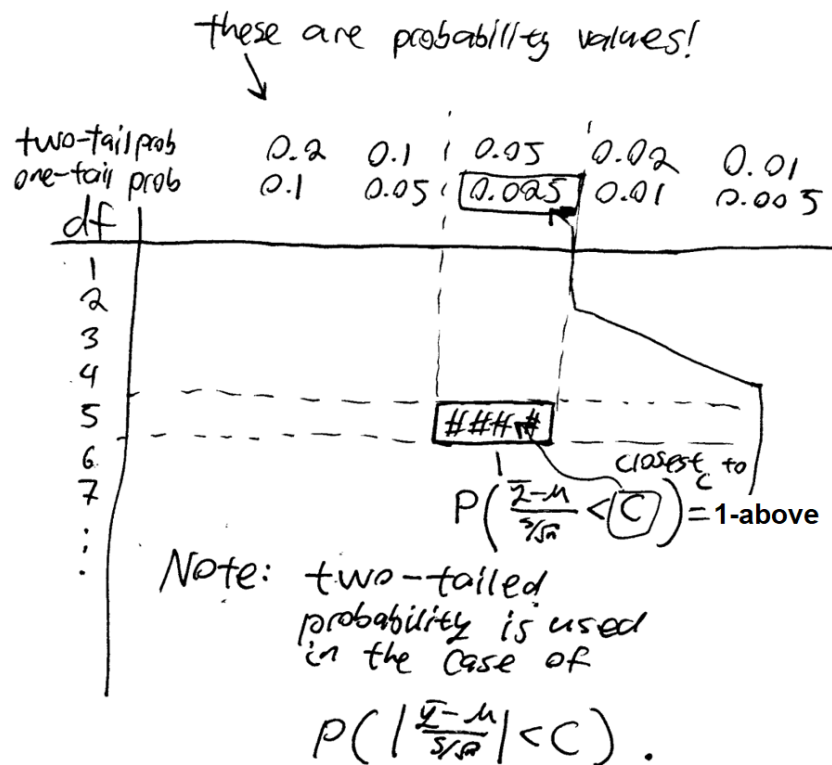 these are probability values!
two-tail prob 0.2 0.1 0.05 0.02 0.01
one-tail prob 0.1 0.05 0.025 0.01 0.005
df
1
2
3
4
5 ####
6
closest to
c
7
P( (ȳ-μ)/(s/√n) < C ) = 1-above
⋮
Note: two-tailed
probability is used
in the case of
P( | (ȳ-μ)/(s/√n) | < C ).